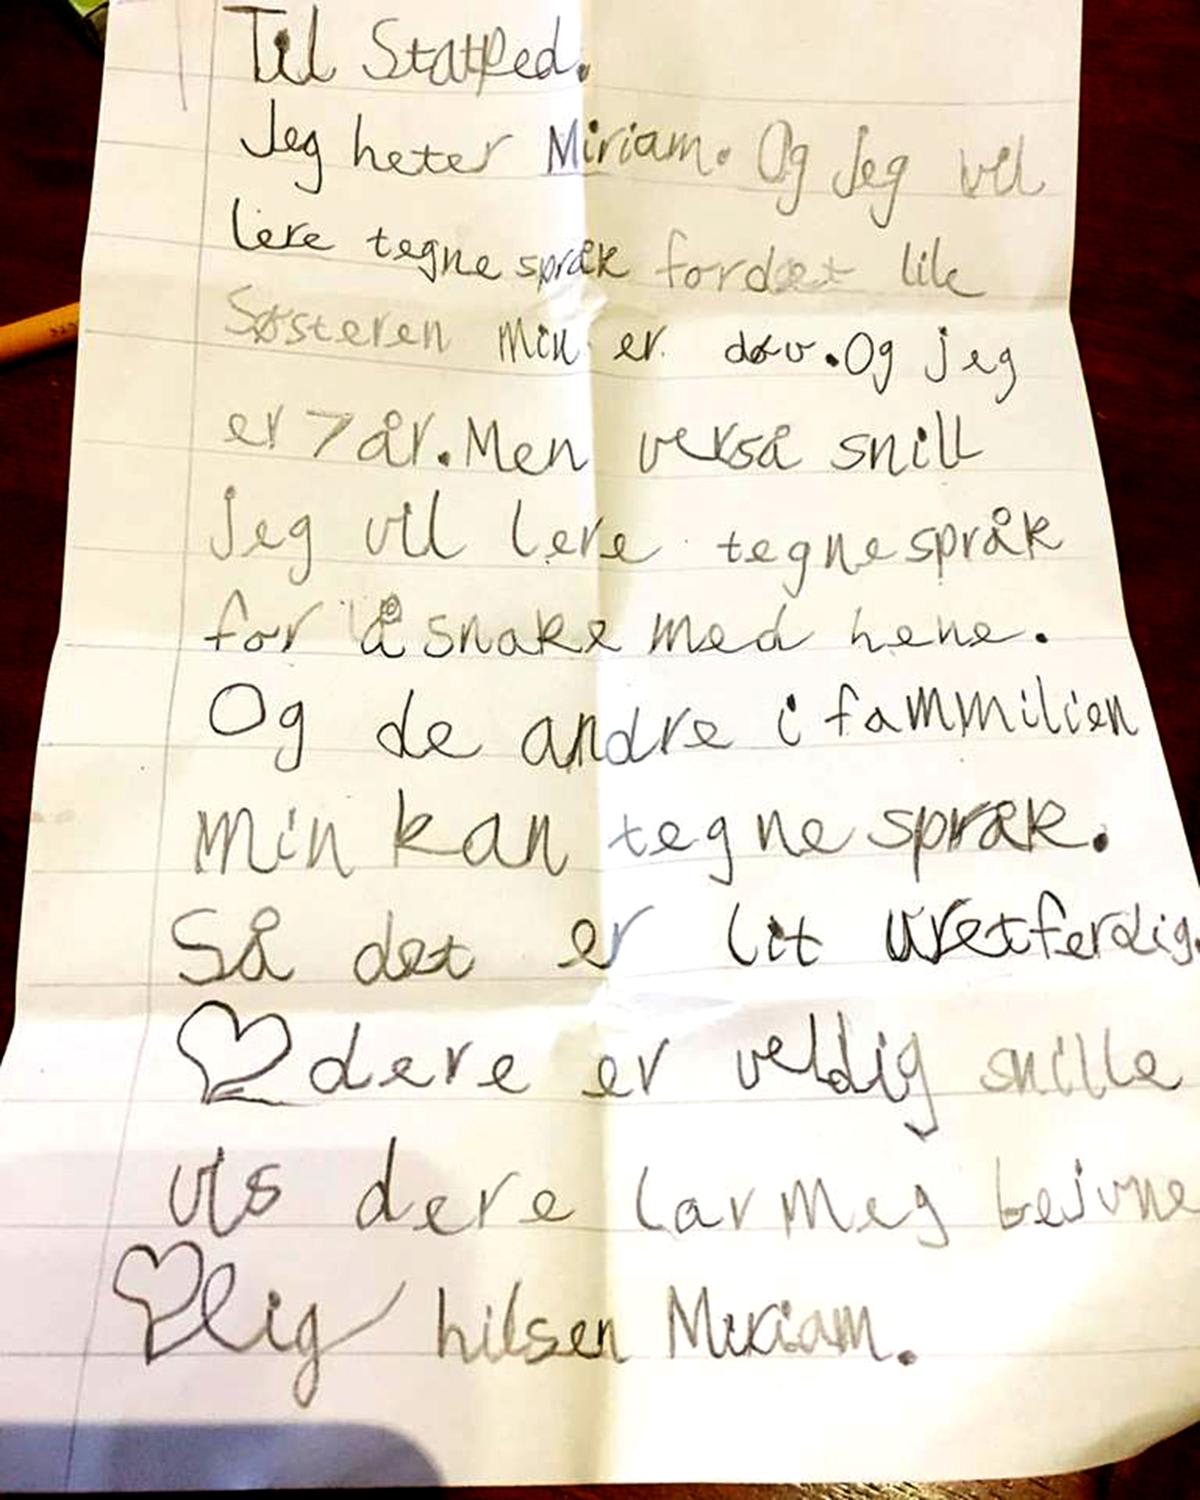 Til StatPed.
Jeg heter Miriam. Og jeg vil
lere tegne språk fordet lile
Søsteren min er døv. Og jeg
er 7 år. Men verså snill
jeg vil lere tegnespråk
for å snake med hene.
Og de andre i fammilien
min kan tegne språk.
Så det er lit uretferdig.
dere er veldig snille
vis dere lar meg bejvne
lig hilsen Miriam.